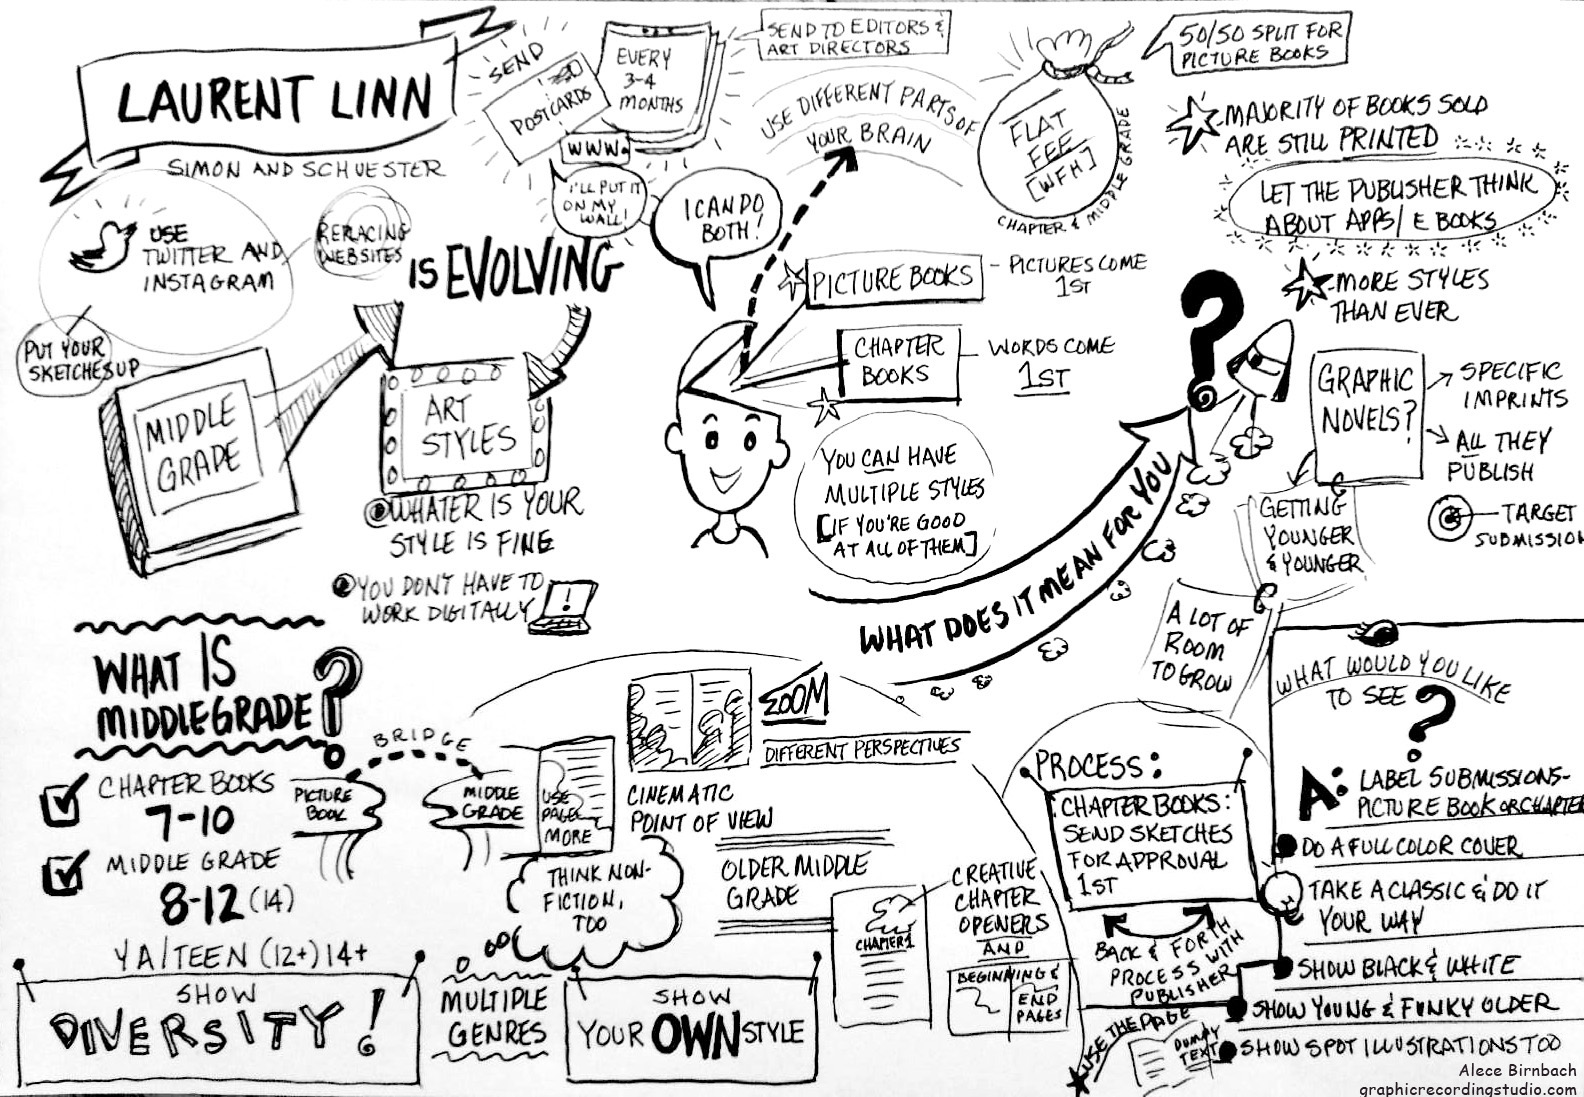 LAURENT LINN
SIMON AND SCHUESTER
SEND
POSTCARDS
EVERY
3-4
MONTHS
WWW.
I'LL PUT IT
ON MY
WALL!
SEND TO EDITORS &
ART DIRECTORS
USE DIFFERENT PARTS OF
YOUR BRAIN
I CAN DO
BOTH!
FLAT
FEE
[WFH]
CHAPTER & MIDDLE GRADE
50/50 SPLIT FOR
PICTURE BOOKS
MAJORITY OF BOOKS SOLD
ARE STILL PRINTED
LET THE PUBLISHER THINK
ABOUT APPS/ E BOOKS
MORE STYLES
THAN EVER
USE
TWITTER AND
INSTAGRAM
REPLACING
WEBSITES
PUT YOUR
SKETCHES UP
MIDDLE
GRADE
IS EVOLVING
ART
STYLES
WHATER IS YOUR
STYLE IS FINE
YOU DON'T HAVE TO
WORK DIGITALLY
!
PICTURE BOOKS - PICTURES COME
1ST
CHAPTER
BOOKS
WORDS COME
1ST
YOU CAN HAVE
MULTIPLE STYLES
[IF YOU'RE GOOD
AT ALL OF THEM]
WHAT DOES IT MEAN FOR YOU
?
GRAPHIC
NOVELS?
SPECIFIC
IMPRINTS
ALL THEY
PUBLISH
TARGET
SUBMISSION
GETTING
YOUNGER
& YOUNGER
A LOT OF
ROOM
TO GROW
WHAT IS
MIDDLEGRADE?
CHAPTER BOOKS
7-10
MIDDLE GRADE
8-12 (14)
YA/TEEN (12+) 14+
SHOW
DIVERSITY!
BRIDGE
PICTURE
BOOK
MIDDLE
GRADE
USE
PAGES
MORE
THINK NON-
FICTION,
TOO
MULTIPLE
GENRES
SHOW
YOUR OWN STYLE
ZOOM
DIFFERENT PERSPECTIVES
CINEMATIC
POINT OF VIEW
OLDER MIDDLE
GRADE
CHAPTER 1
CREATIVE
CHAPTER
OPENERS
AND
BEGINNING &
END
PAGES
PROCESS:
CHAPTER BOOKS:
SEND SKETCHES
FOR APPROVAL
1ST
BACK & FORTH
PROCESS WITH
PUBLISHER
USE THE PAGE
DUMMY
TEXT
WHAT WOULD YOU LIKE
TO SEE
?
A: LABEL SUBMISSIONS-
PICTURE BOOK OR CHAPTER
DO A FULL COLOR COVER
TAKE A CLASSIC & DO IT
YOUR WAY
SHOW BLACK & WHITE
SHOW YOUNG & FUNKY OLDER
SHOW SPOT ILLUSTRATIONS TOO
Alece Birnbach
graphicrecordingstudio.com